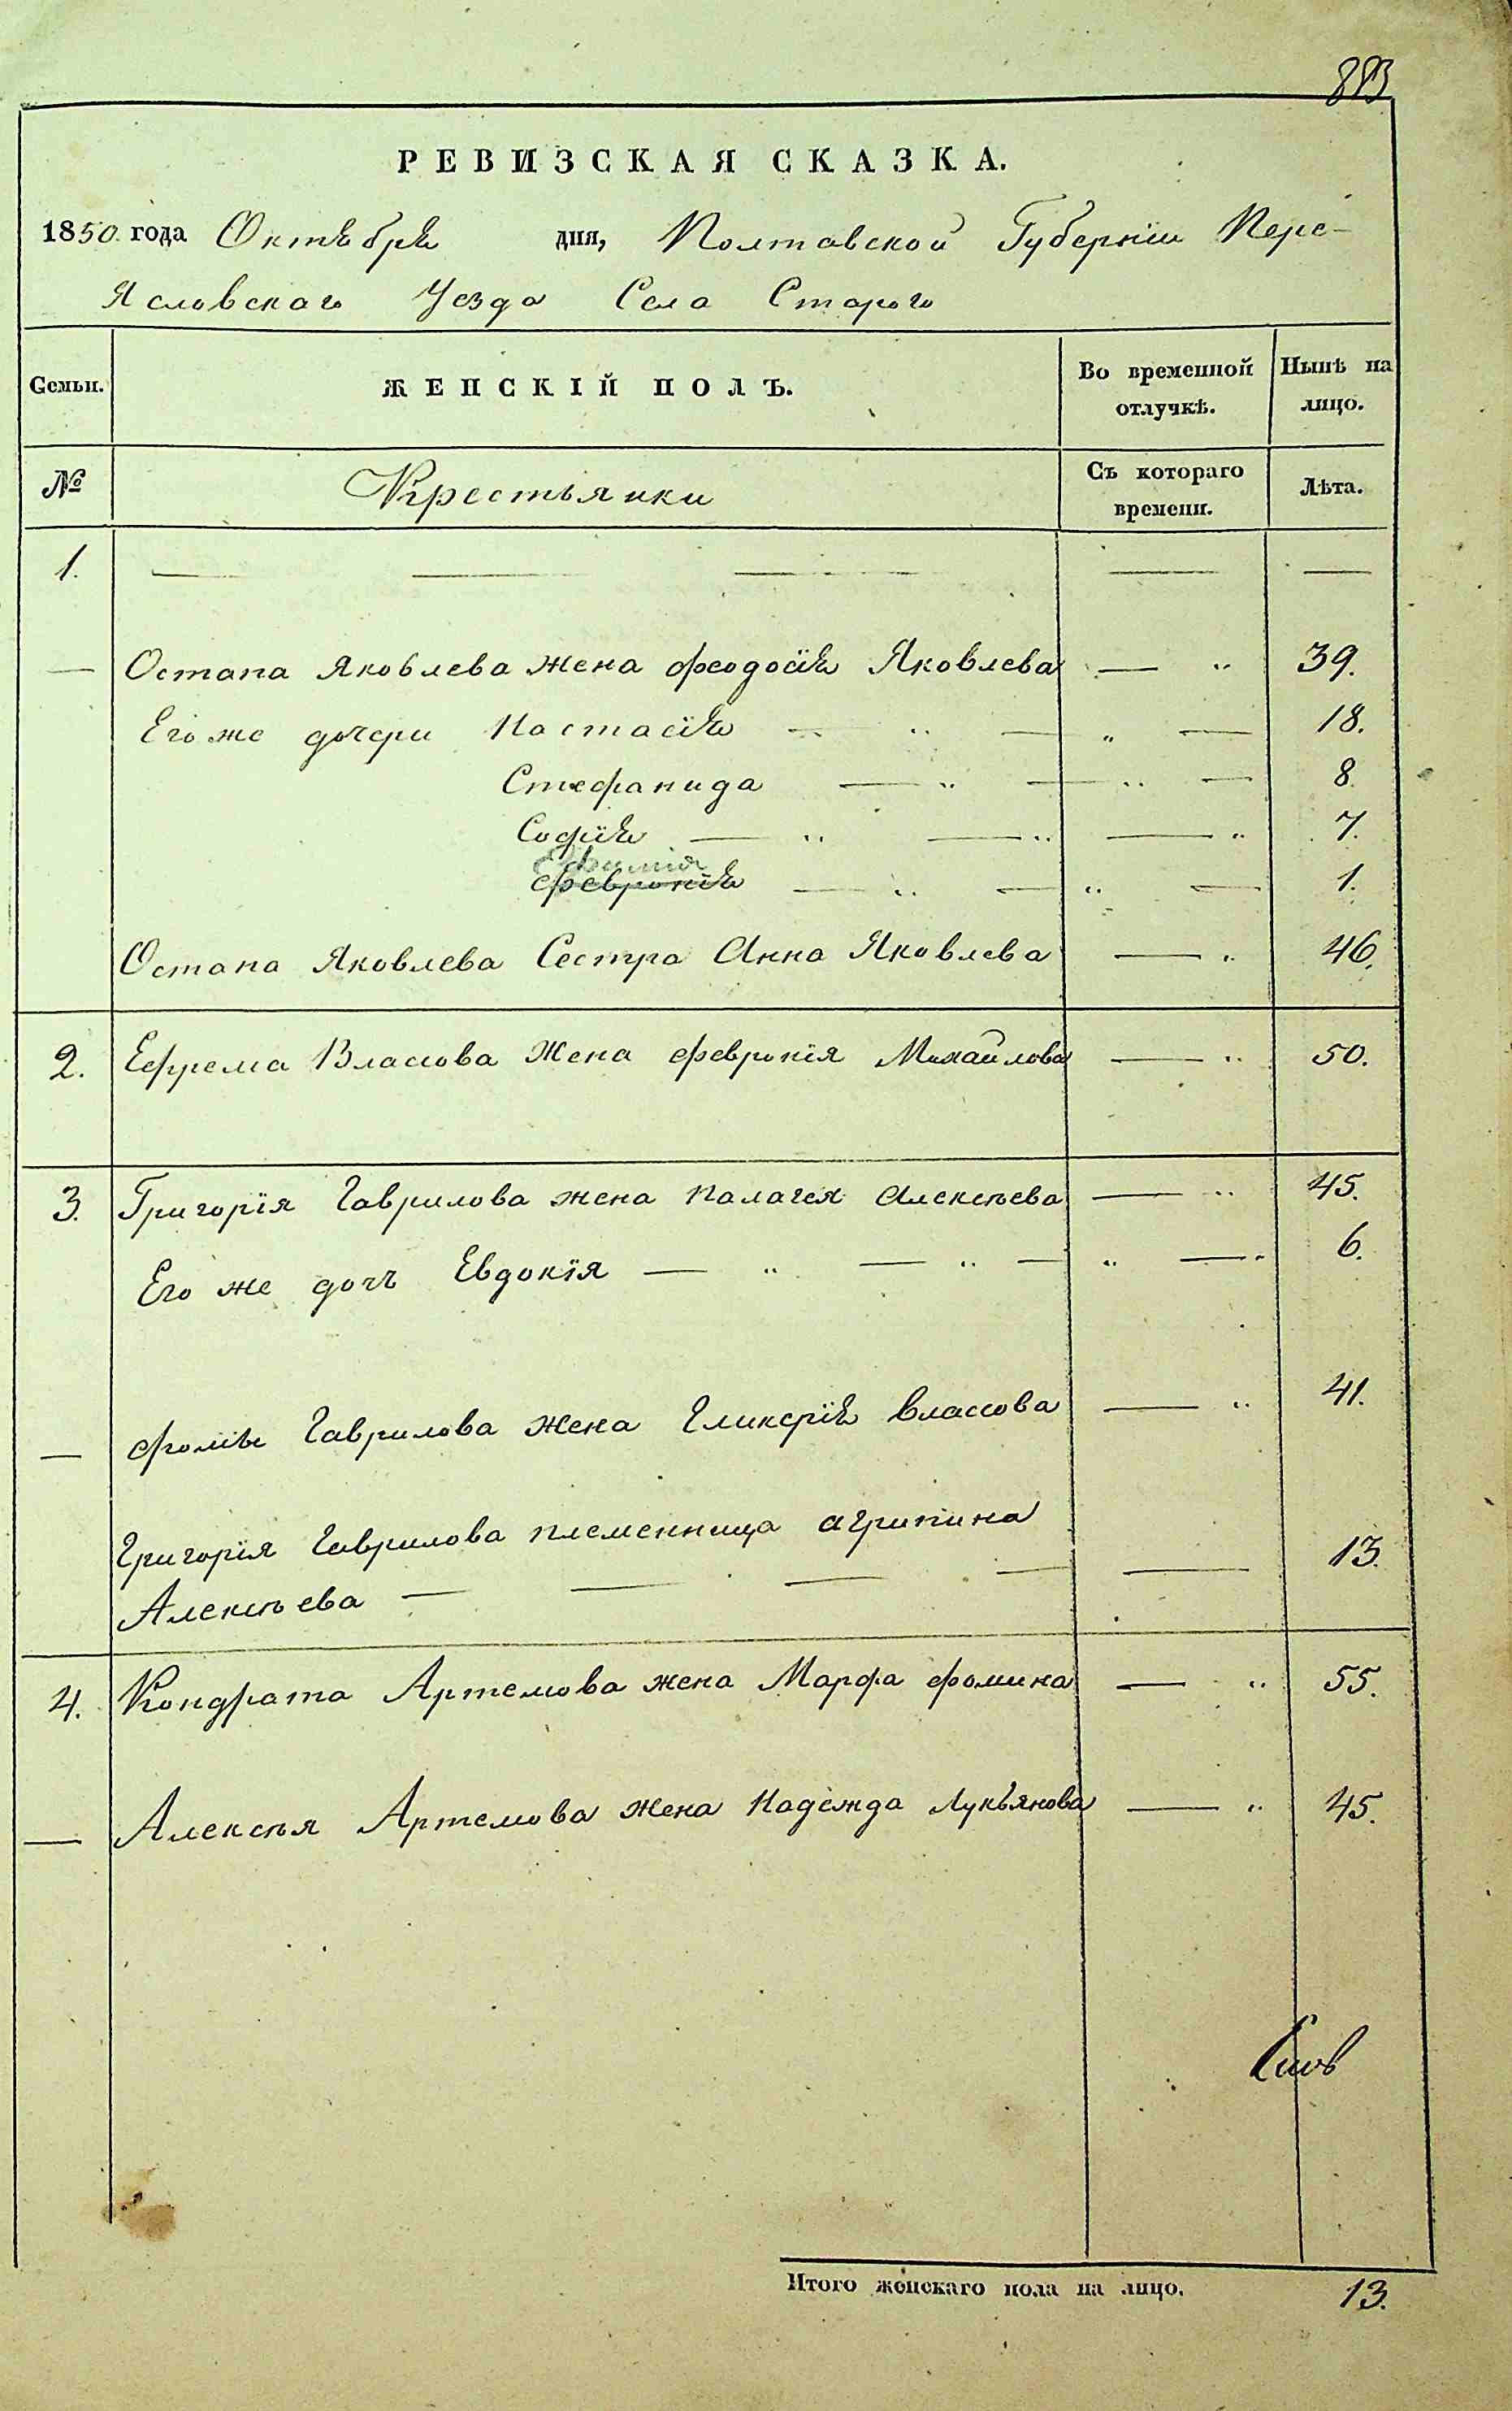 883
РЕВИЗСКАЯ СКАЗКА.
1850 года Октября дня, Полтавской Губернiи Пере-
Ясловскаго Уезда Села Старого
Семьи. ЖЕНСКIЙ ПОЛЪ. Во временной отлучкѣ. Нынѣ на лицо.
№ Крестьянки Съ котораго времени. Лѣта.
1.
Остапа Яковлева жена Феодосiя Яковлева 39.
Его же дочери Настасiя 18.
Стефанида 8.
Софiя 7.
Ефимiя
Февронiя 1.
Остапа Яковлева Сестра Анна Яковлева 46.
2. Ефрема Власова Жена Февронiя Михайлова 50.
3. Григорiя Гаврилова жена Палагея Алексѣева 45.
Его же дочъ Евдокiя 6.
Фомы Гаврилова жена Гликерiя Власова 41.
Григорiя Гаврилова племенница Агрипина
Алексѣева 13.
4. Кондрата Артемова жена Марфа Фомина 55.
Алексѣя Артемова жена Надежда Лукьянова 45.
Итого женскаго пола на лицо. 13.